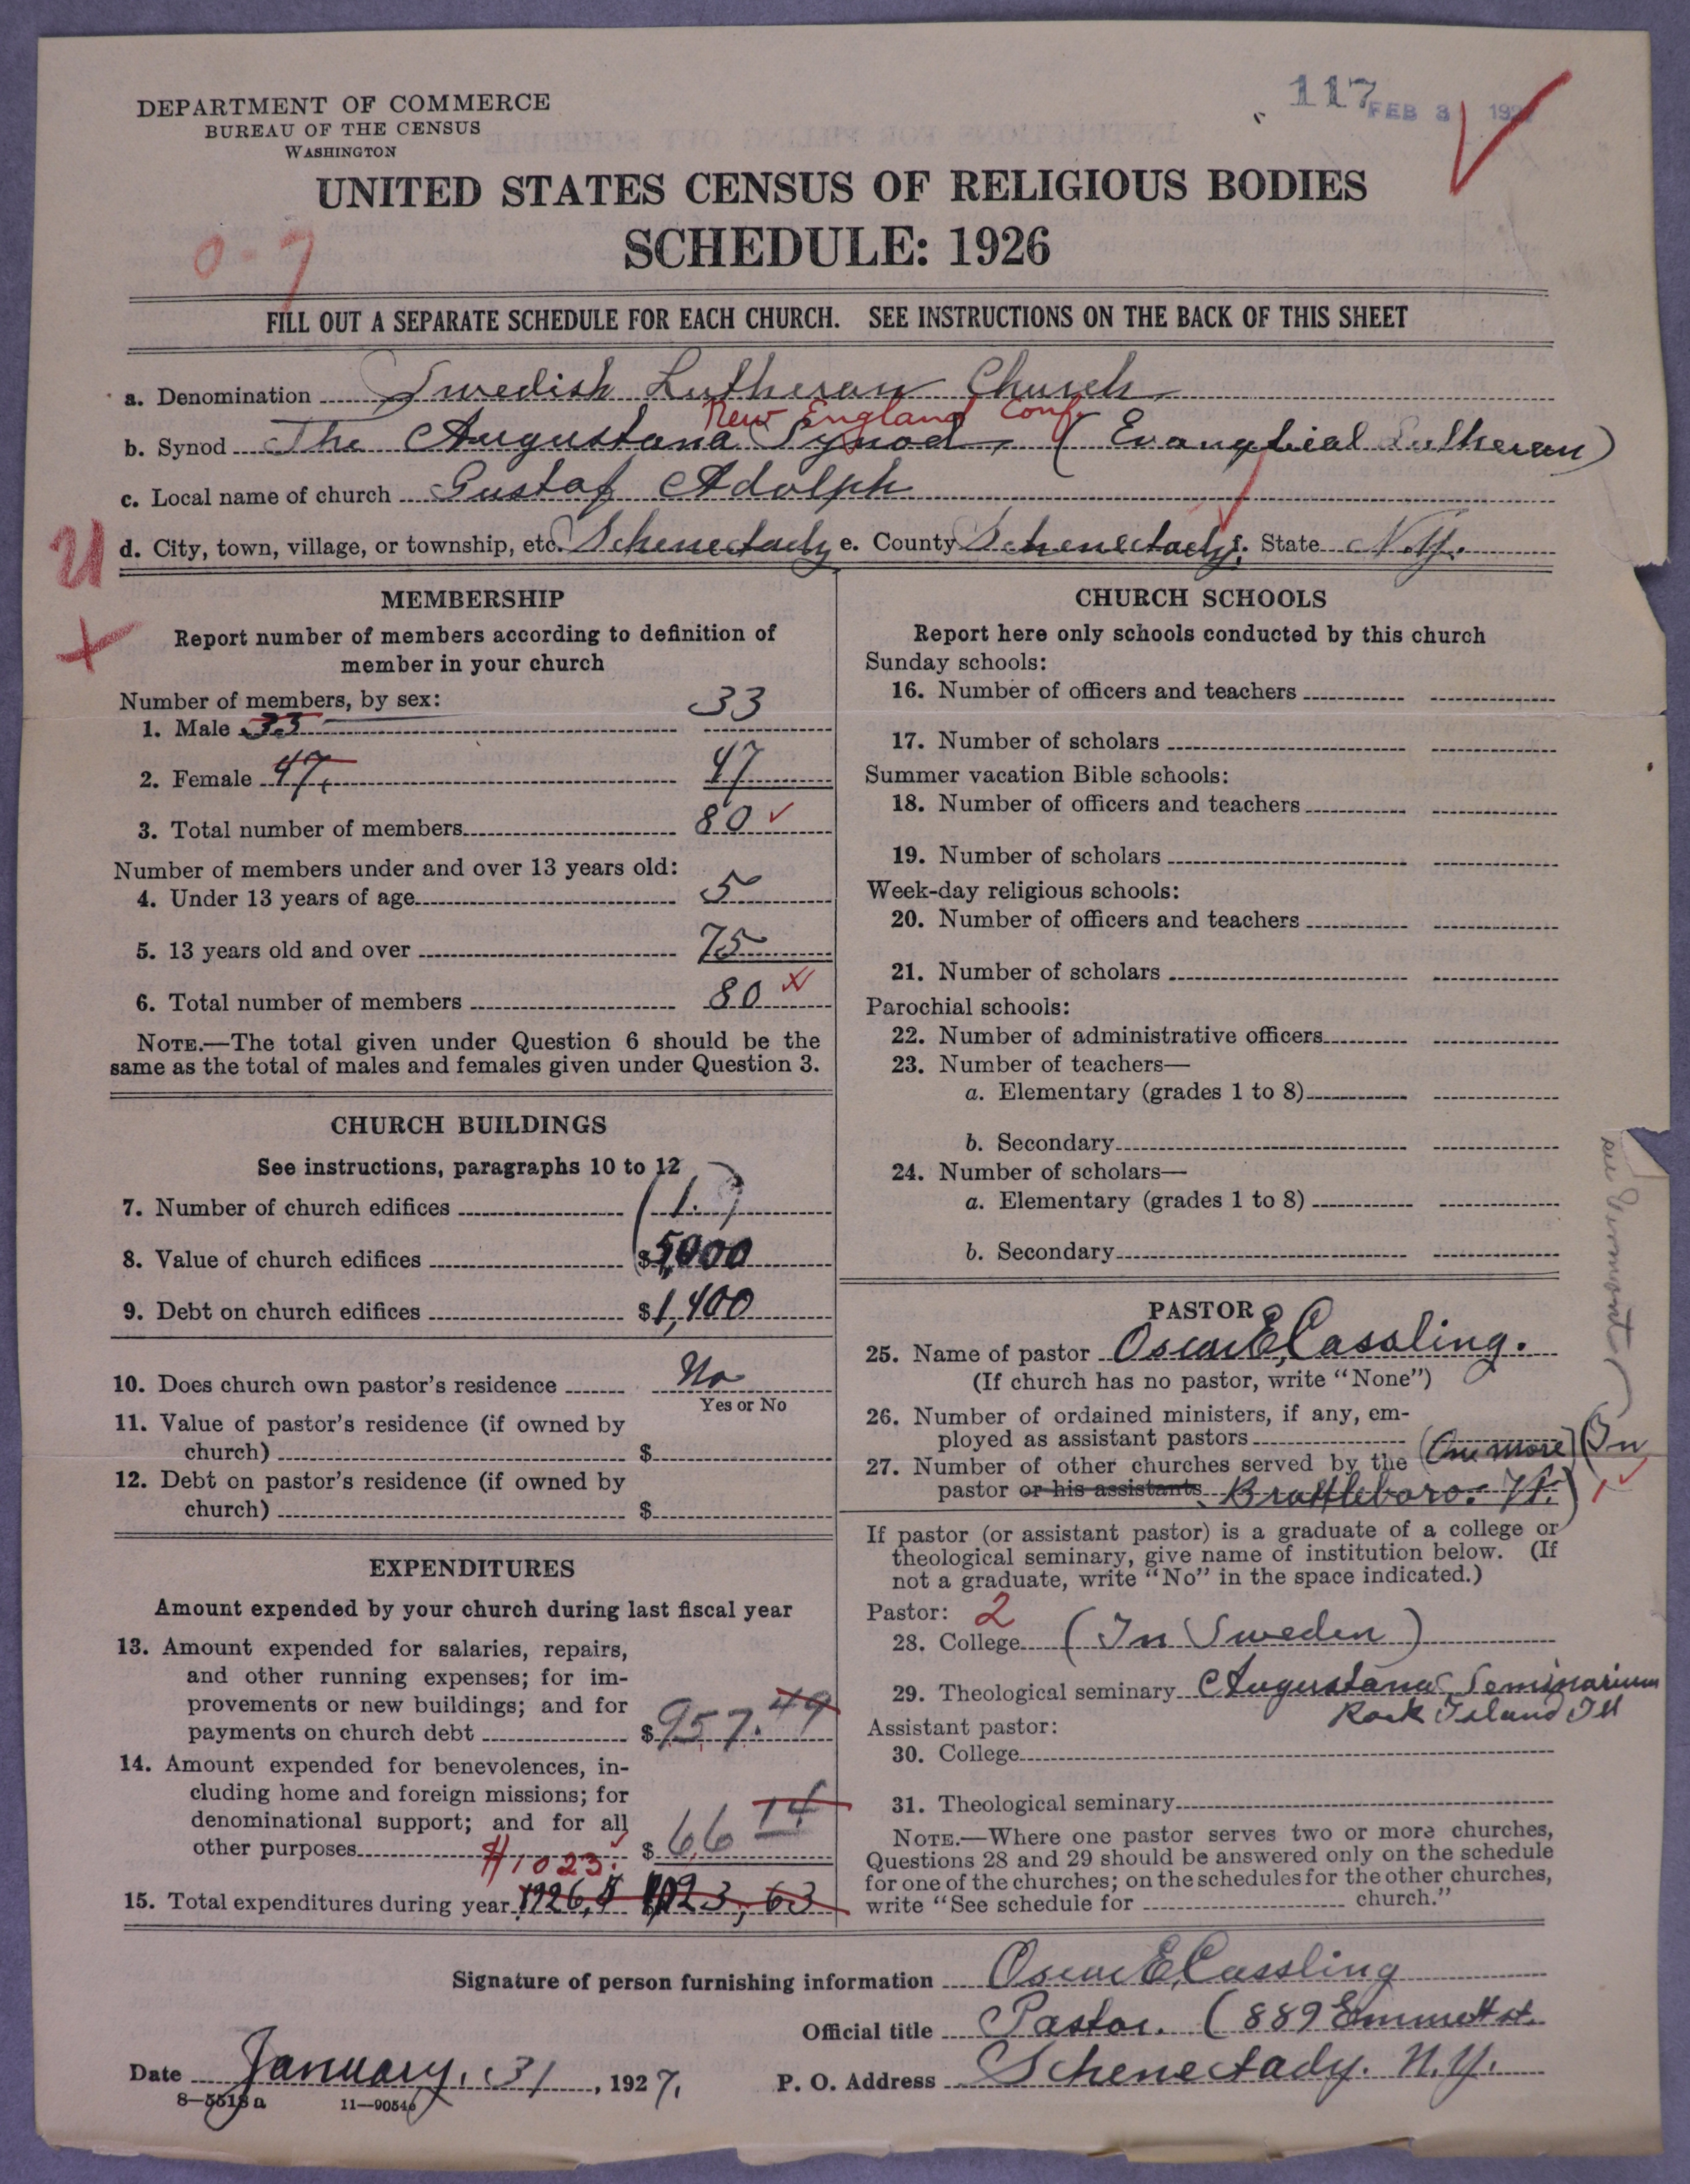 117 FEB 3
DEPARTMENT OF COMMERCE
BUREAU OF THE CENSUS
WASHINGTON
UNITED STATES CENSUS OF RELIGIOUS BODIES
SCHEDULE: 1926
0-7
FILL OUT A SEPARATE SCHEDULE FOR EACH CHURCH. SEE INSTRUCTIONS ON THE BACK OF THIS SHEET
a. Denomination Swedish Lutheran Church
New England Conf.
b. Synod The Augustana Synod, (Evanglical Lutheran)
c. Local name of church Gustaf Adolph
d. City, town, village, or township, etc. Schenectady e. County Schenectady f. State N.Y.
MEMBERSHIP
Report number of members according to definition of
member in your church
Number of members, by sex:
1. Male 33 33
2. Female 47. 47
3. Total number of members 80
Number of members under and over 13 years old:
4. Under 13 years of age 5
5. 13 years old and over 75
6. Total number of members 80
NOTE.—The total given under Question 6 should be the
same as the total of males and females given under Question 3.
CHURCH BUILDINGS
See instructions, paragraphs 10 to 12
7. Number of church edifices (1.)
8. Value of church edifices $5,000
9. Debt on church edifices $1,400
10. Does church own pastor's residence No
Yes or No
11. Value of pastor's residence (if owned by
church) $
12. Debt on pastor's residence (if owned by
church) $
EXPENDITURES
Amount expended by your church during last fiscal year
13. Amount expended for salaries, repairs,
and other running expenses; for im-
provements or new buildings; and for
payments on church debt $957.49
14. Amount expended for benevolences, in-
cluding home and foreign missions; for
denominational support; and for all
other purposes $66 14
$1023.
15. Total expenditures during year 1926, $ 1023,63
CHURCH SCHOOLS
Report here only schools conducted by this church
Sunday schools:
16. Number of officers and teachers
17. Number of scholars
Summer vacation Bible schools:
18. Number of officers and teachers
19. Number of scholars
Week-day religious schools:
20. Number of officers and teachers
21. Number of scholars
Parochial schools:
22. Number of administrative officers
23. Number of teachers—
a. Elementary (grades 1 to 8)
b. Secondary
24. Number of scholars—
a. Elementary (grades 1 to 8)
b. Secondary
PASTOR
25. Name of pastor Oscar E. Cassling.
(If church has no pastor, write "None")
26. Number of ordained ministers, if any, em-
ployed as assistant pastors
27. Number of other churches served by the (One more) (In
pastor or his assistants Brattleboro. Vt.) 1
If pastor (or assistant pastor) is a graduate of a college or
theological seminary, give name of institution below. (If
not a graduate, write "No" in the space indicated.)
Pastor: 2
28. College (In Sweden)
29. Theological seminary Augustana Seminarium
Rock Island Ill
Assistant pastor:
30. College
31. Theological seminary
NOTE.—Where one pastor serves two or more churches,
Questions 28 and 29 should be answered only on the schedule
for one of the churches; on the schedules for the other churches,
write "See schedule for church."
Signature of person furnishing information Oscar E. Cassling
Official title Pastor. (889 Emmett st.
Date January. 31, 1927. P. O. Address Schenectady. N.Y.
8—5518a 11—9054